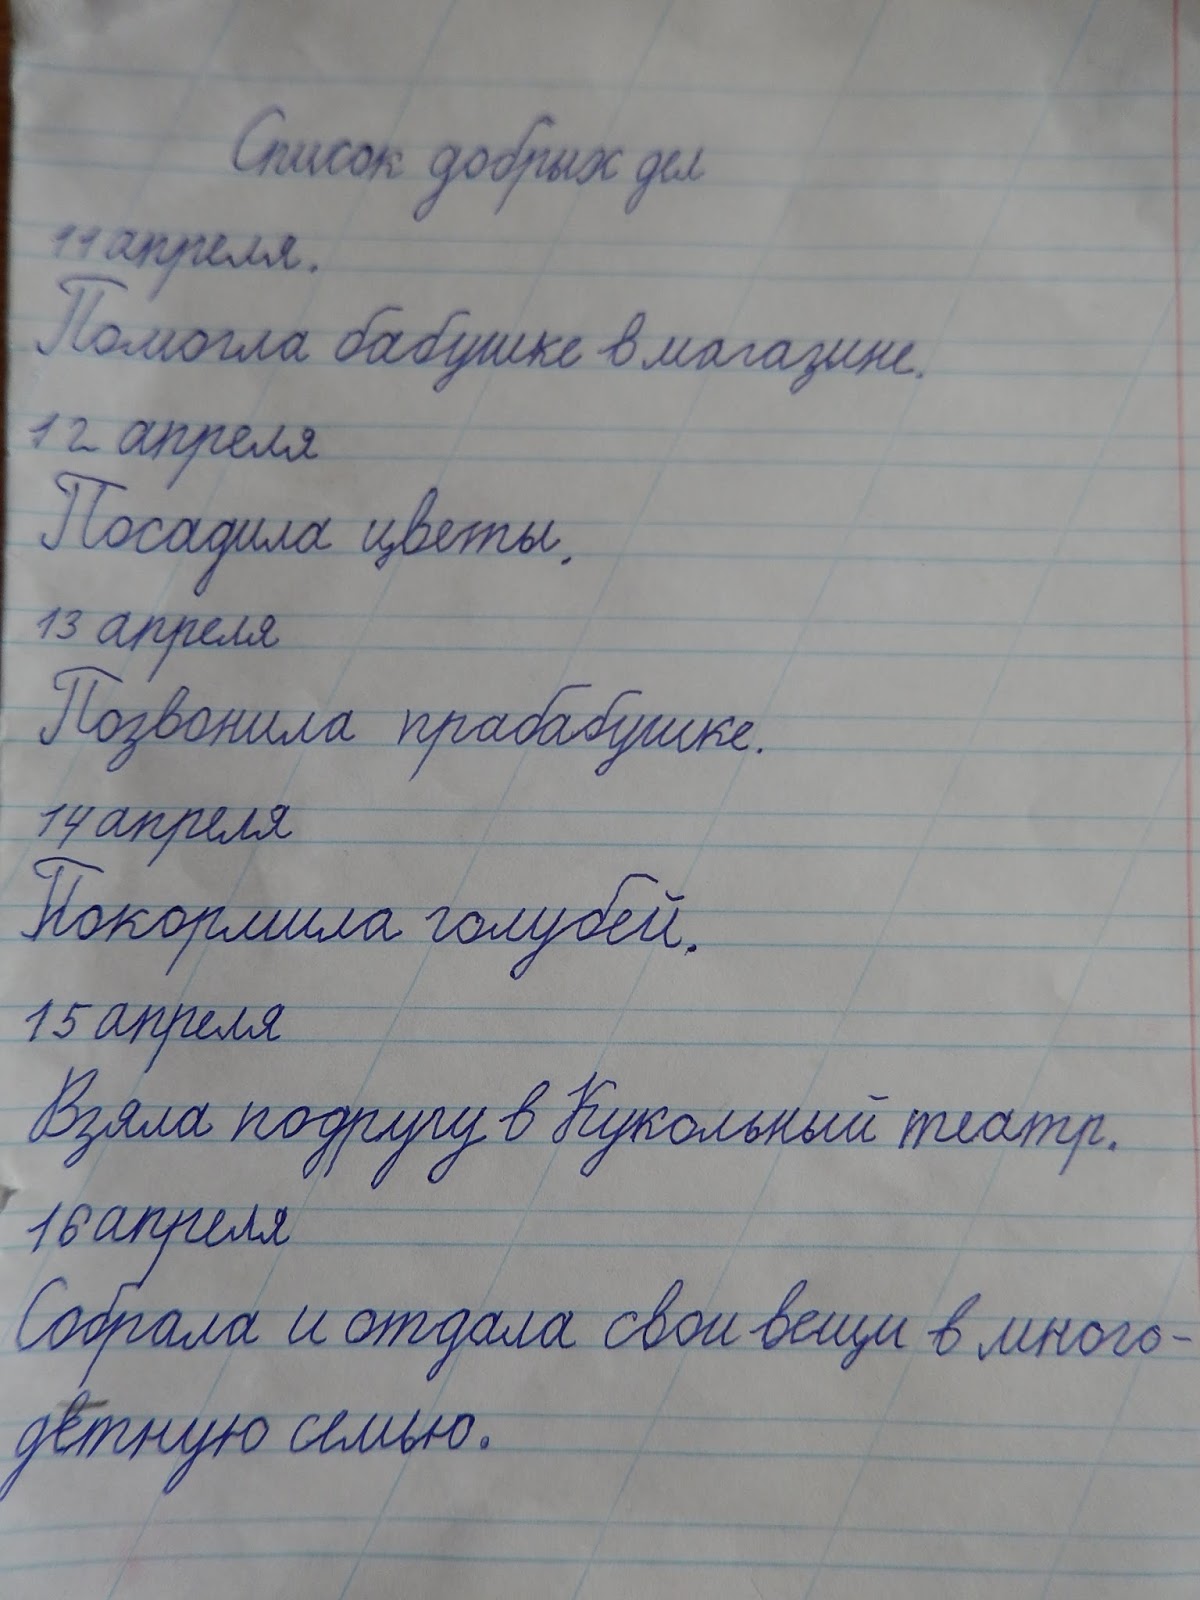 Список добрых дел
11 апреля.
Помогла бабушке в магазине.
12 апреля
Посадила цветы.
13 апреля
Позвонила прабабушке.
14 апреля
Покормила голубей.
15 апреля
Взяла подругу в Кукольный театр.
16 апреля
Собрала и отдала свои вещи в много-
детную семью.